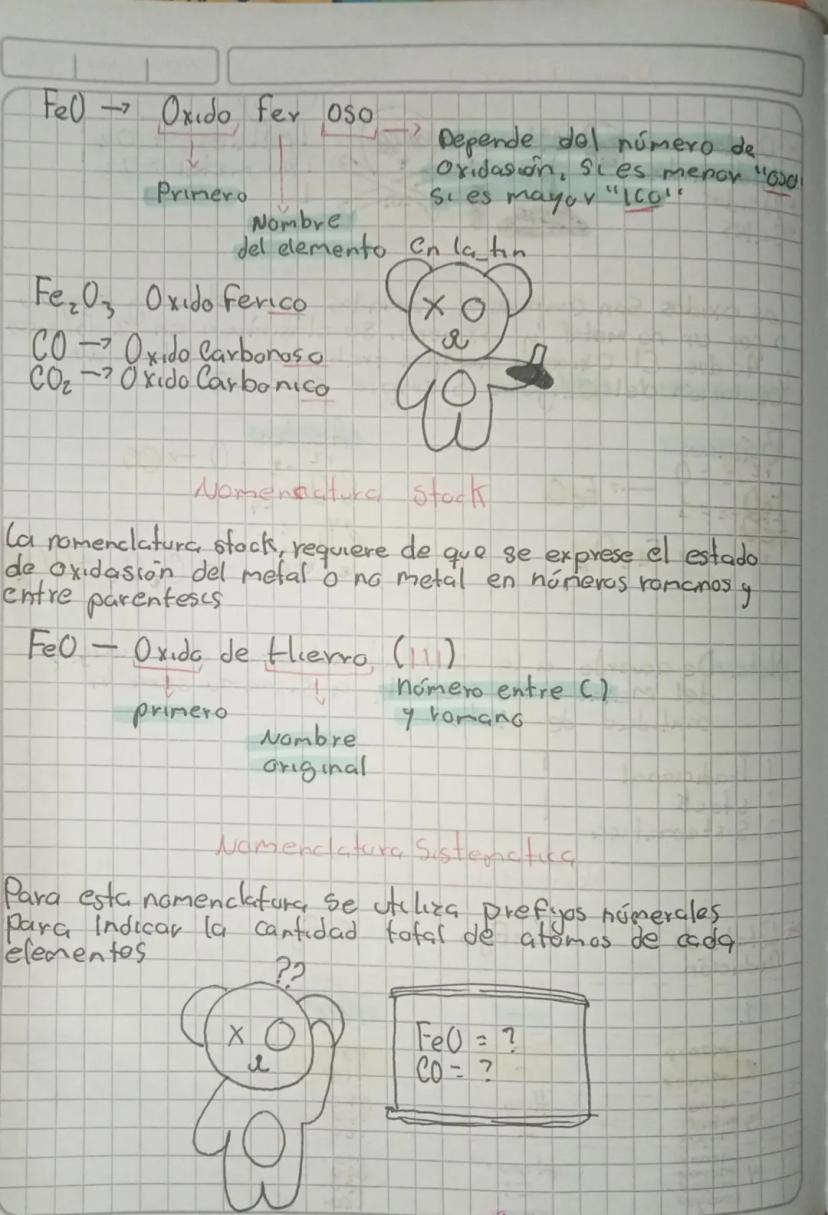 FeO → Oxido Fer oso →
Depende del número de
Oxidasión, Si es menor "oso"
Si es mayor "ICO"
Primero
Nombre
del elemento en latin
Fe₂O₃ Oxido Ferico
CO → Oxido Carbonoso
CO₂ → Oxido Carbonico
Nomenclatura Stock
La nomenclatura stock, requiere de que se exprese el estado
de oxidasión del metal o no metal en números romanos y
entre parentesis
FeO - Oxido de Hierro (III)
primero
Nombre
original
número entre ()
y romano
Nomenclatura Sistematica
Para esta nomenclatura se utiliza prefijos númerales
para indicar la cantidad total de atomos de cada
elementos
??
FeO = ?
CO = ?